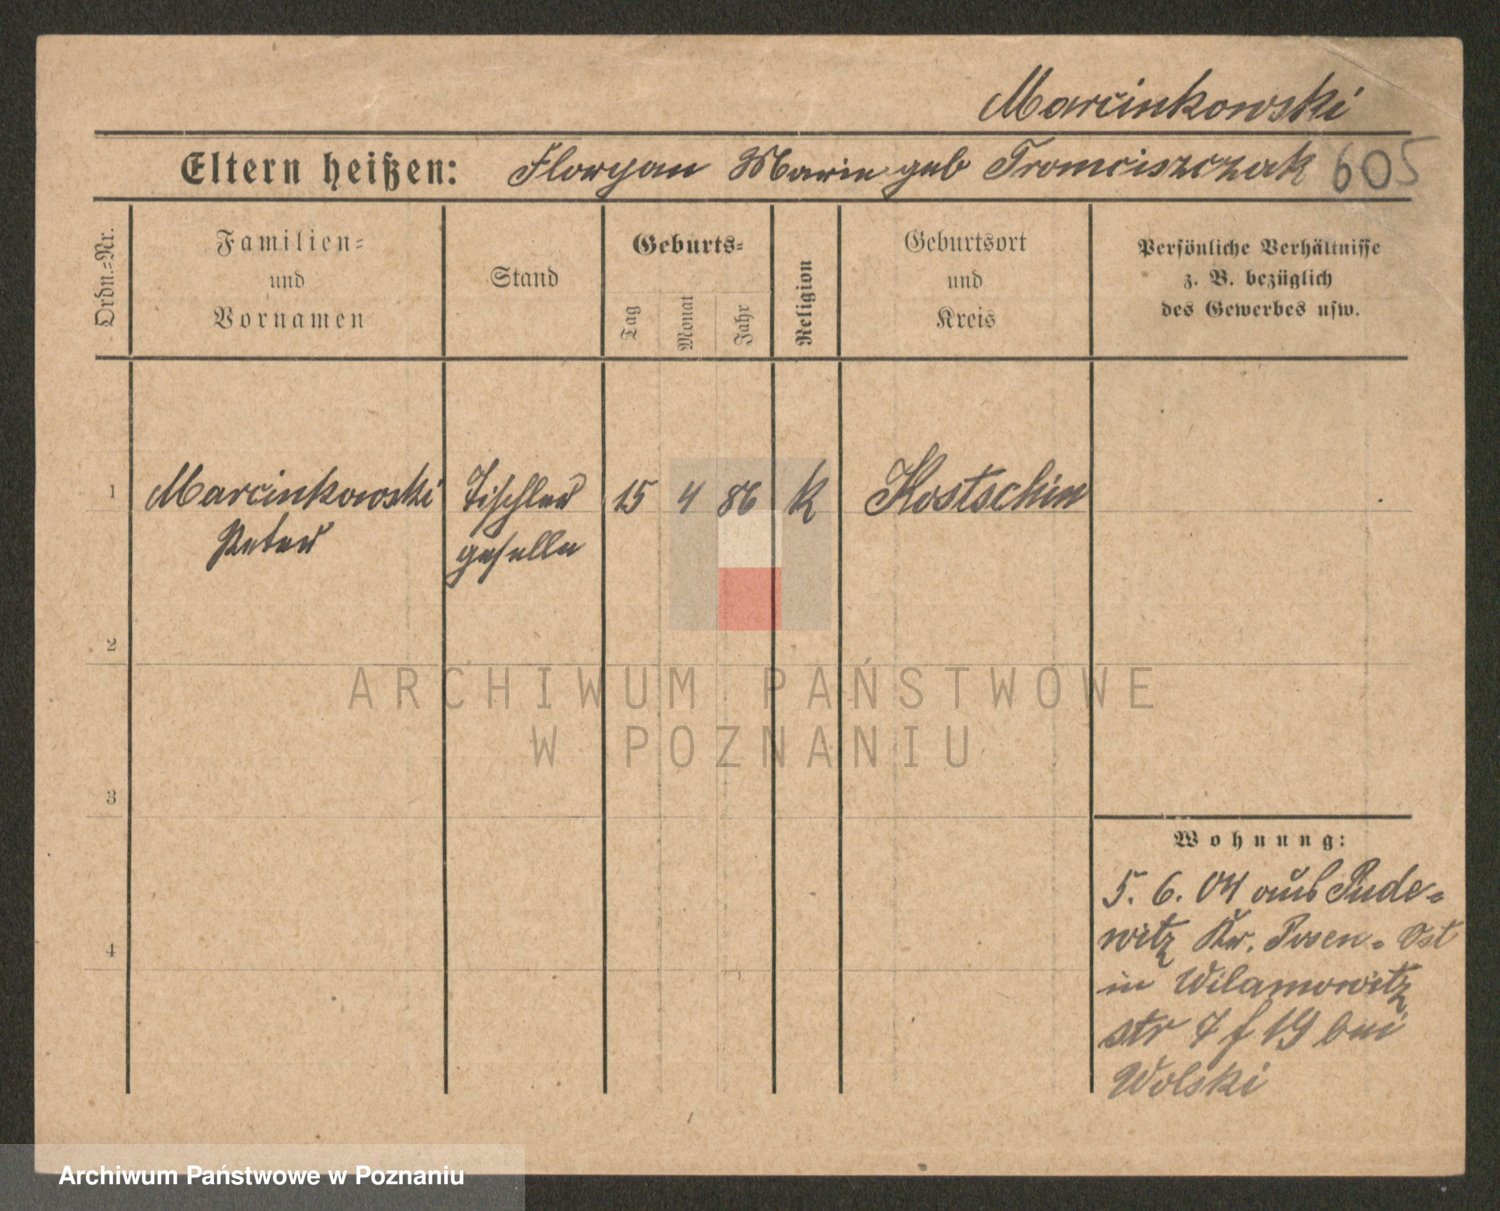 Marcinkowski
Eltern heißen: Floryan Marie geb Tromciszczak 605
Ordn.-Nr.
Familien-
und
Vornamen
Stand
Geburts-
Tag
Monat
Jahr
Religion
Geburtsort
und
Kreis
Persönliche Verhältnisse
z. B. bezüglich
des Gewerbes usw.
1 Marcinkowski Tischler 15 4 86 k Kostschin
Peter geselle
2
3
4
Wohnung:
5. 6. 04 aus Pude-
witz Kr. Posen-Ost
in Wilamowitz
str 7 f 19 bei
Wolski
ARCHIWUM PAŃSTWOWE
W POZNANIU
Archiwum Państwowe w Poznaniu